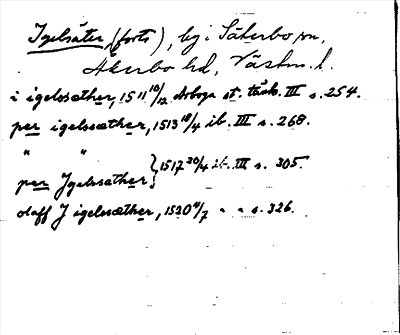 Igelsäter, (forts), by i Säterbo sn,
Åkerbo hd, Västm. l.
i igelssæther, 1511 10/12 Arboga st. tänk. III s. 254.
per igelssæther, 1513 18/4 ib. III s. 268.
" "
per Jgelssæther } 1517 20/4 ib. III s. 305.
olaff J igelsæther, 1520 4/7 " " s. 326.